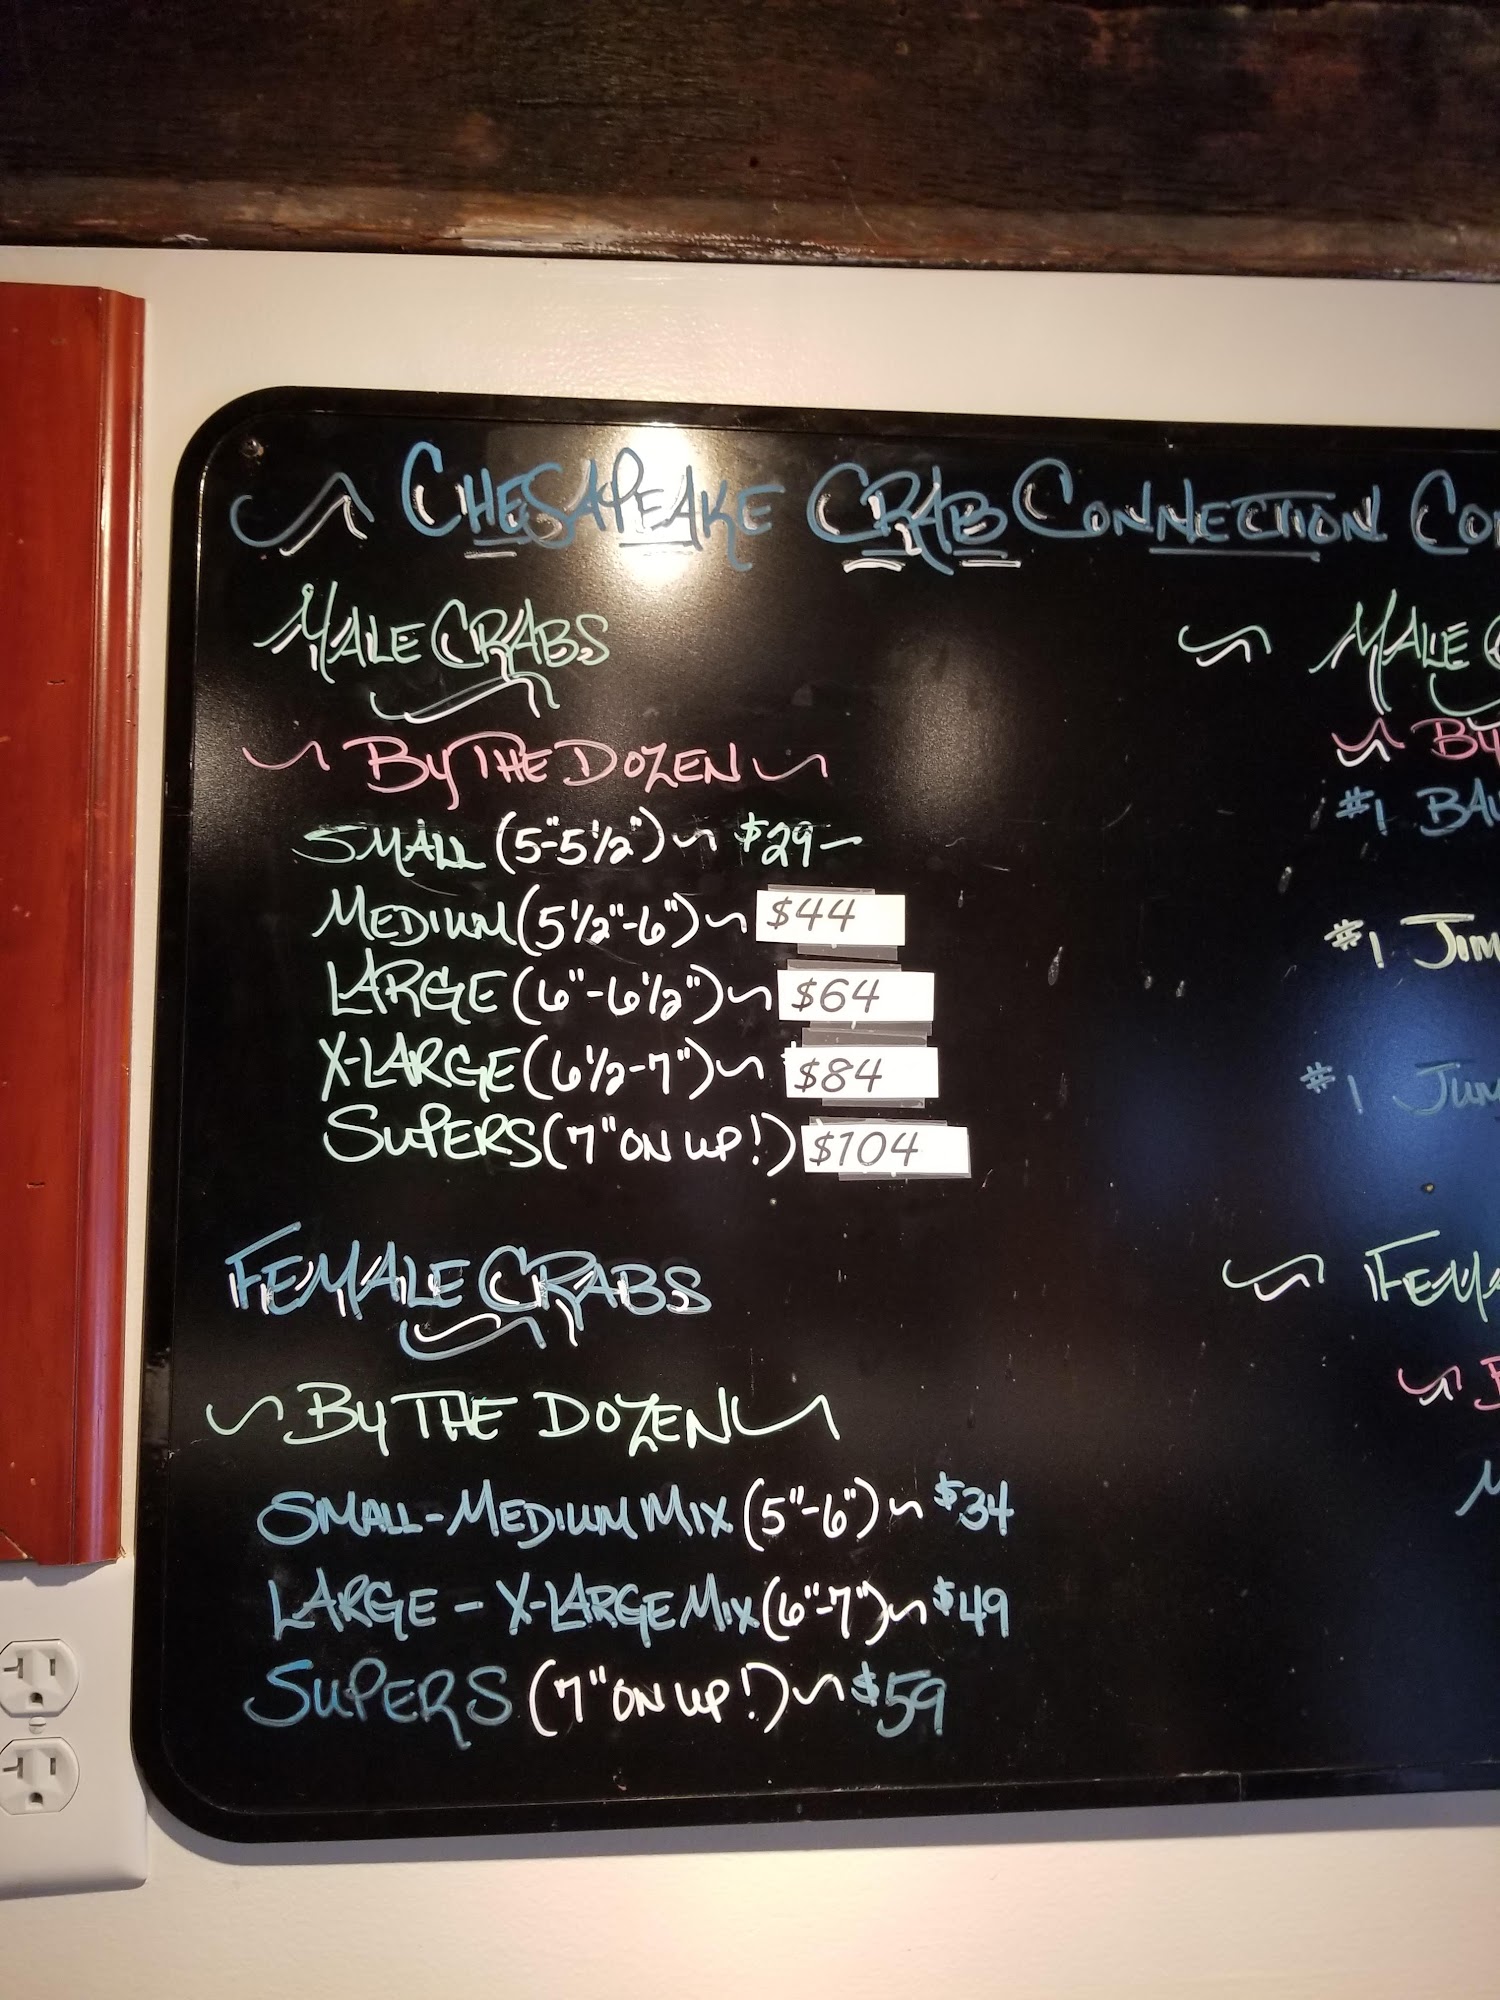 CHESAPEAKE CRAB CONNECTION
MALE CRABS
BY THE DOZEN
SMALL (5"-5 1/2") ~ $29-
MEDIUM (5 1/2"-6") ~ $44
LARGE (6"-6 1/2") ~ $64
X-LARGE (6 1/2-7") ~ $84
SUPERS (7" ON UP!) $104
FEMALE CRABS
BY THE DOZEN
SMALL-MEDIUM MIX (5"-6") ~ $34
LARGE - X-LARGE MIX (6"-7") ~ $49
SUPERS (7" ON UP!) ~ $59
MALE
#1
#1
#1